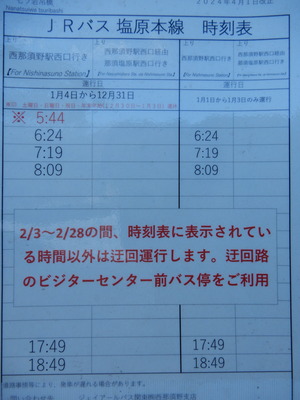 七ツ岩吊橋
2024年4月1日改正
JRバス 塩原本線 時刻表
上り
上り
上り
上り
西那須野駅西口行き
西那須野駅西口経由
那須塩原駅西口行き
西那須野駅西口行き
【For Nishinasuno Station】
運行日
運行日
1月4日から12月31日
1月1日から1月3日のみ運行
※ 5:44
6:24
6:24
7:19
7:19
8:09
8:09
2/3～2/28の間、時刻表に表示されてい
る時間以外は迂回運行します。迂回路
のビジターセンター前バス停をご利用
17:49
17:49
18:49
18:49
道路事情等により、発車が遅れる場合があります。
問い合わせ先 ジェイアールバス関東㈱西那須野支店